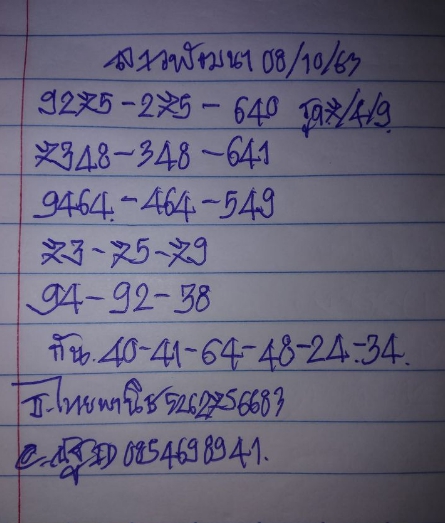 ลาวพัฒนา 08/10/63
9275-275-640 รูด7/4/9
7348-348-641
9464-464-549
73-75-79
94-92-38
กัน.40-41-64-48-24-34.
ธ.ไทยพานิช 5262756683
0854698941.